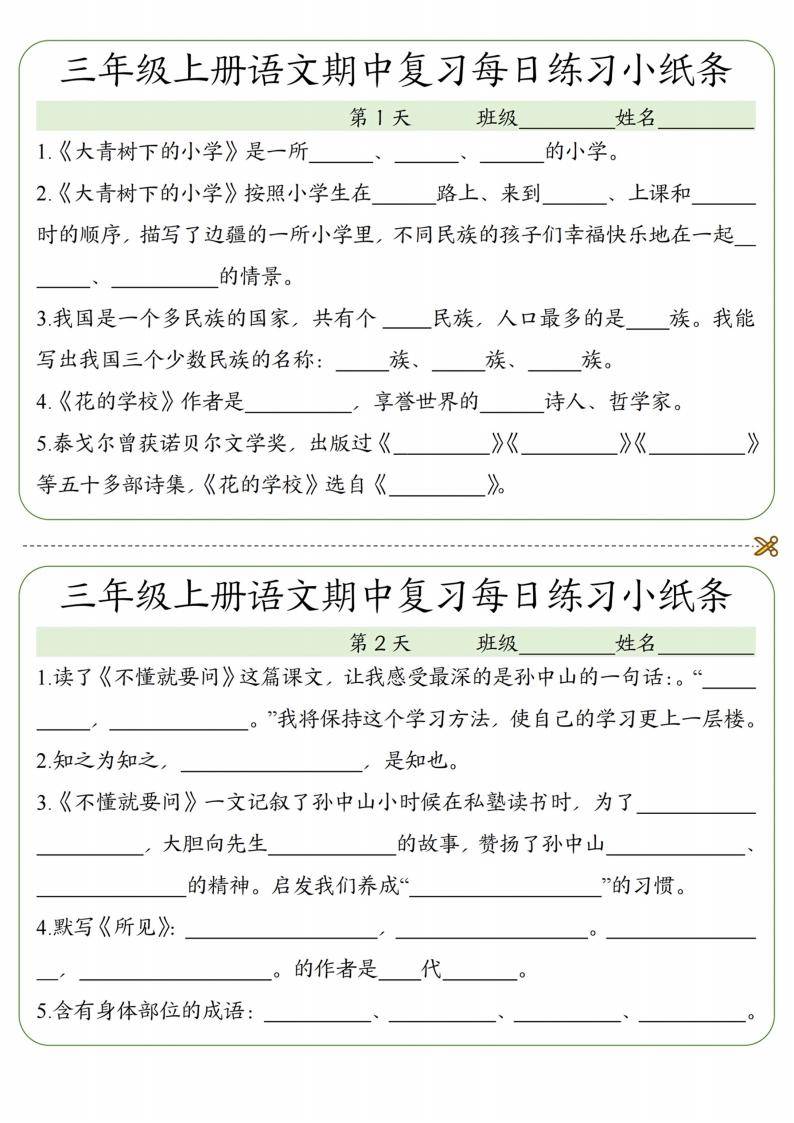 三年级上册语文期中复习每日练习小纸条
第 1 天 班级_________姓名_________
1.《大青树下的小学》是一所______、______、______的小学。
2.《大青树下的小学》按照小学生在______路上、来到______、上课和______
时的顺序，描写了边疆的一所小学里，不同民族的孩子们幸福快乐地在一起__
_____、__________的情景。
3.我国是一个多民族的国家，共有个 ____民族，人口最多的是____族。我能
写出我国三个少数民族的名称：_____族、_____族、_____族。
4.《花的学校》作者是__________，享誉世界的______诗人、哲学家。
5.泰戈尔曾获诺贝尔文学奖，出版过《_________》《_________》《_________》
等五十多部诗集，《花的学校》选自《_________》。
三年级上册语文期中复习每日练习小纸条
第 2 天 班级_________姓名_________
1.读了《不懂就要问》这篇课文，让我感受最深的是孙中山的一句话：。“_____
_____，_____________。”我将保持这个学习方法，使自己的学习更上一层楼。
2.知之为知之，_________________，是知也。
3.《不懂就要问》一文记叙了孙中山小时候在私塾读书时，为了___________
__________，大胆向先生____________的故事，赞扬了孙中山_____________、
______________的精神。启发我们养成“__________________”的习惯。
4.默写《所见》：__________________，__________________。______________
__，__________________。的作者是____代_______。
5.含有身体部位的成语：__________、__________、__________、__________。